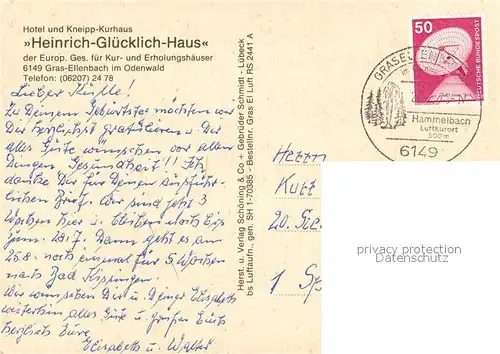 Hotel und Kneipp-Kurhaus
»Heinrich-Glücklich-Haus«
der Europ. Ges. für Kur- und Erholungshäuser
6149 Gras-Ellenbach im Odenwald
Telefon: (06207) 24 78
Lieber
Zu Deinem Geburtstag möchten wir
Dir herzlichst gratulieren u. Dir
alles Gute wünschen vor allen
Dingen Gesundheit!! Ich
danke Dir für Deinen ausführ-
lichen Brief. Wir sind jetzt 3
Wochen hier u. bleiben noch bis
zum 28.7. Dann geht es am
25.8. noch einmal für 5 Wochen
nach Bad Kissingen.
Wir wünschen Dir u. Deiner Elisabeth
weiterhin alles Gute u.
herzlichst Eure
Elisabeth u. Walter
Herst. u. Verlag Schöning & Co + Gebrüder Schmidt · Lübeck
bs Luftaufn., gen. SH 1-70385 - Bestellnr. Gras El Luft RS 2441 A
Herrn
Kurt
1
50
DEUTSCHE BUNDESPOST
Hammelbach
Luftkurort
600m
6149
privacy protection
Datenschutz